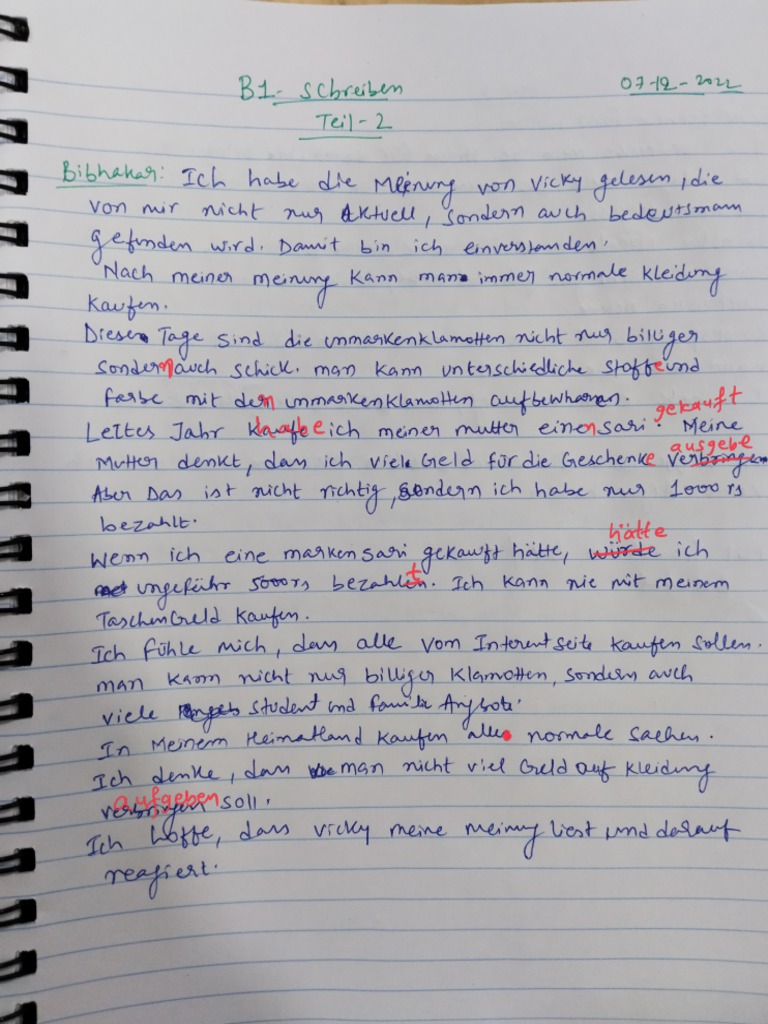 B1- Schreiben
07-12-2022
Teil-2
Bibhakar: Ich habe die Meinung von Vicky gelesen, die
von mir nicht nur Aktuell, sondern auch bedeutsmam
gefunden wird. Damit bin ich einverstanden.
Nach meiner meinung kann man immer normale Kleidung
kaufen.
Diese Tage sind die unmarkenklamotten nicht nur billiger
sondern auch schick. man kann unterschiedliche Stoffe und
farbe mit den unmarkenklamotten aufbewharen.
gekauft
Letztes Jahr habe ich meiner mutter einen sari. Meine
ausgebe
Mutter denkt, dass ich viele Geld für die Geschenke verbringen
Aber Das ist nicht richtig, sondern ich habe nur 1000 rs
bezahlt.
hätte
Wenn ich eine marken sari gekauft hätte, würde ich
ungefähr 5000rs bezahlt. Ich kann nie mit meinem
TaschenGeld kaufen.
Ich fühle mich, dass alle vom Interentseite kaufen sollen.
man kann nicht nur billiger Klamotten, sondern auch
viele Student und familie Angbote.
In Meinem Heimatland kaufen alle normale sachen.
Ich denke, dass man nicht viel Geld auf kleidung
aufgeben
verbringen soll.
Ich hoffe, dass vicky meine meinung liest und darauf
reagiert.